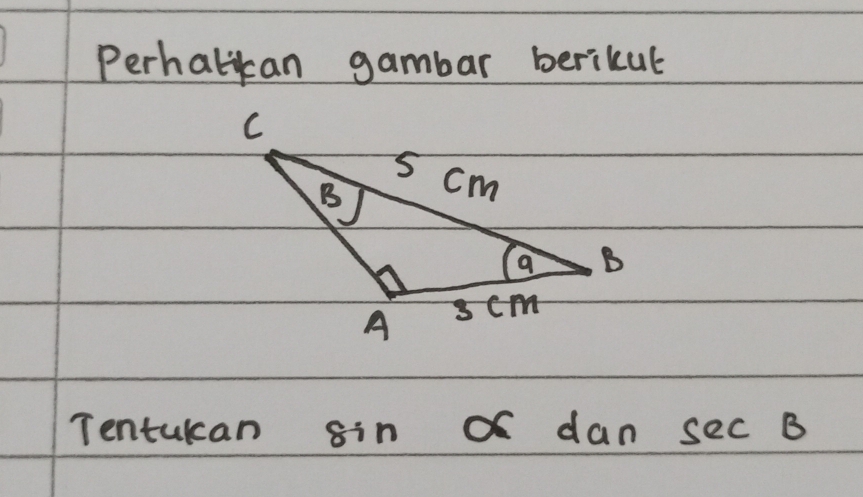 Perhatikan gambar berikut
C
5 cm
B
a
B
A
3 cm
Tentukan sin α dan sec B